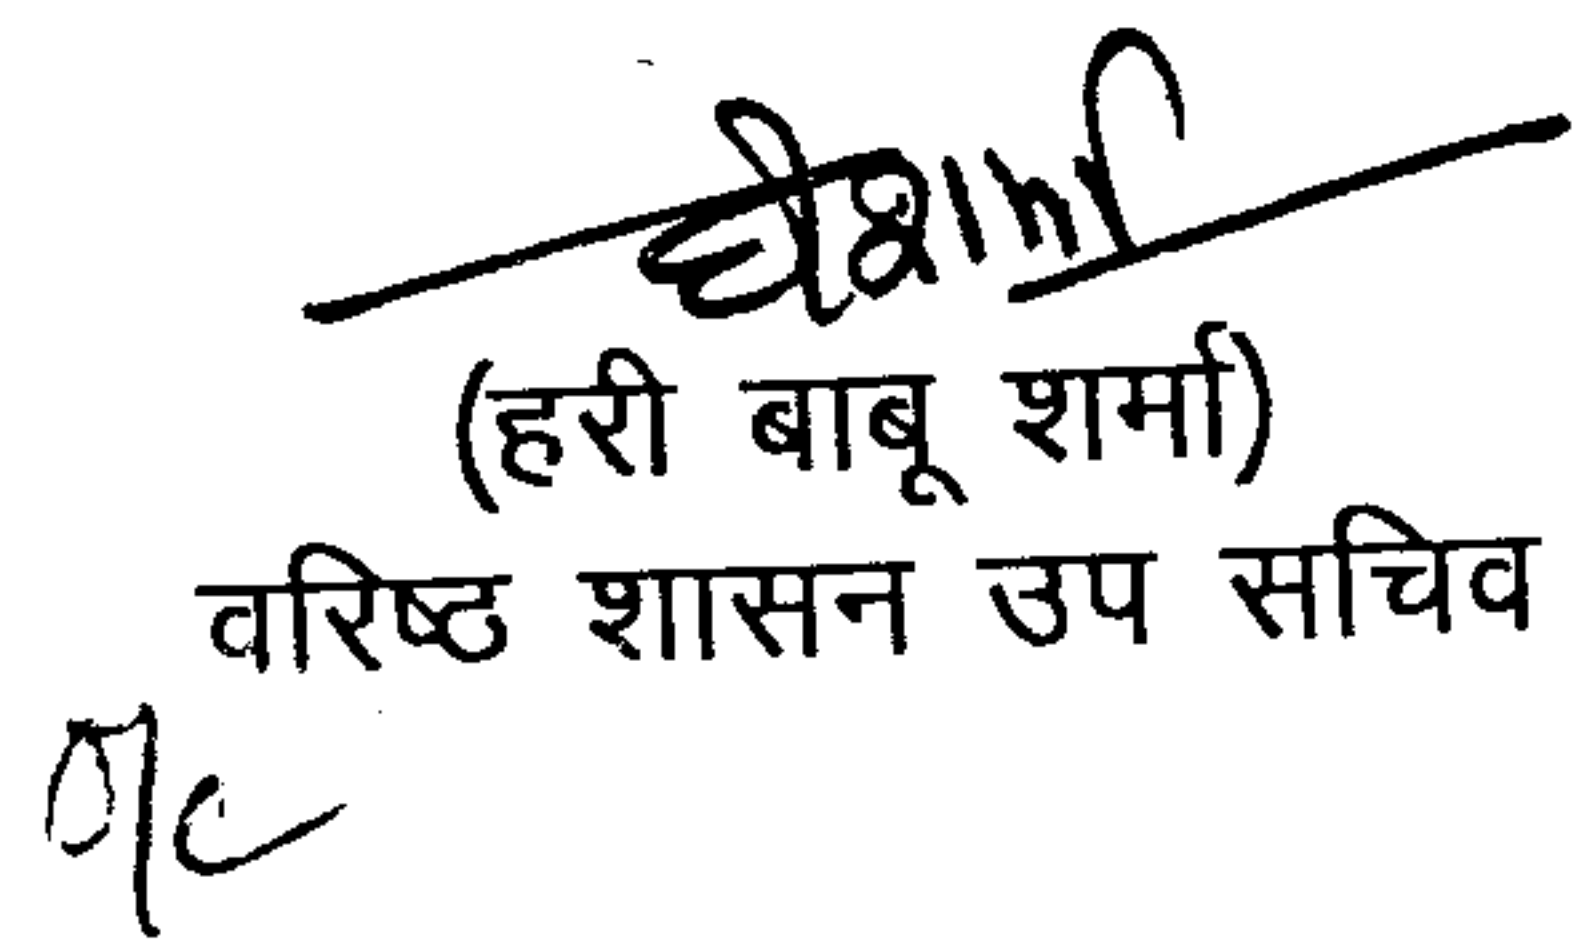 (हरी बाबू शर्मा)
वरिष्ठ शासन उप सचिव